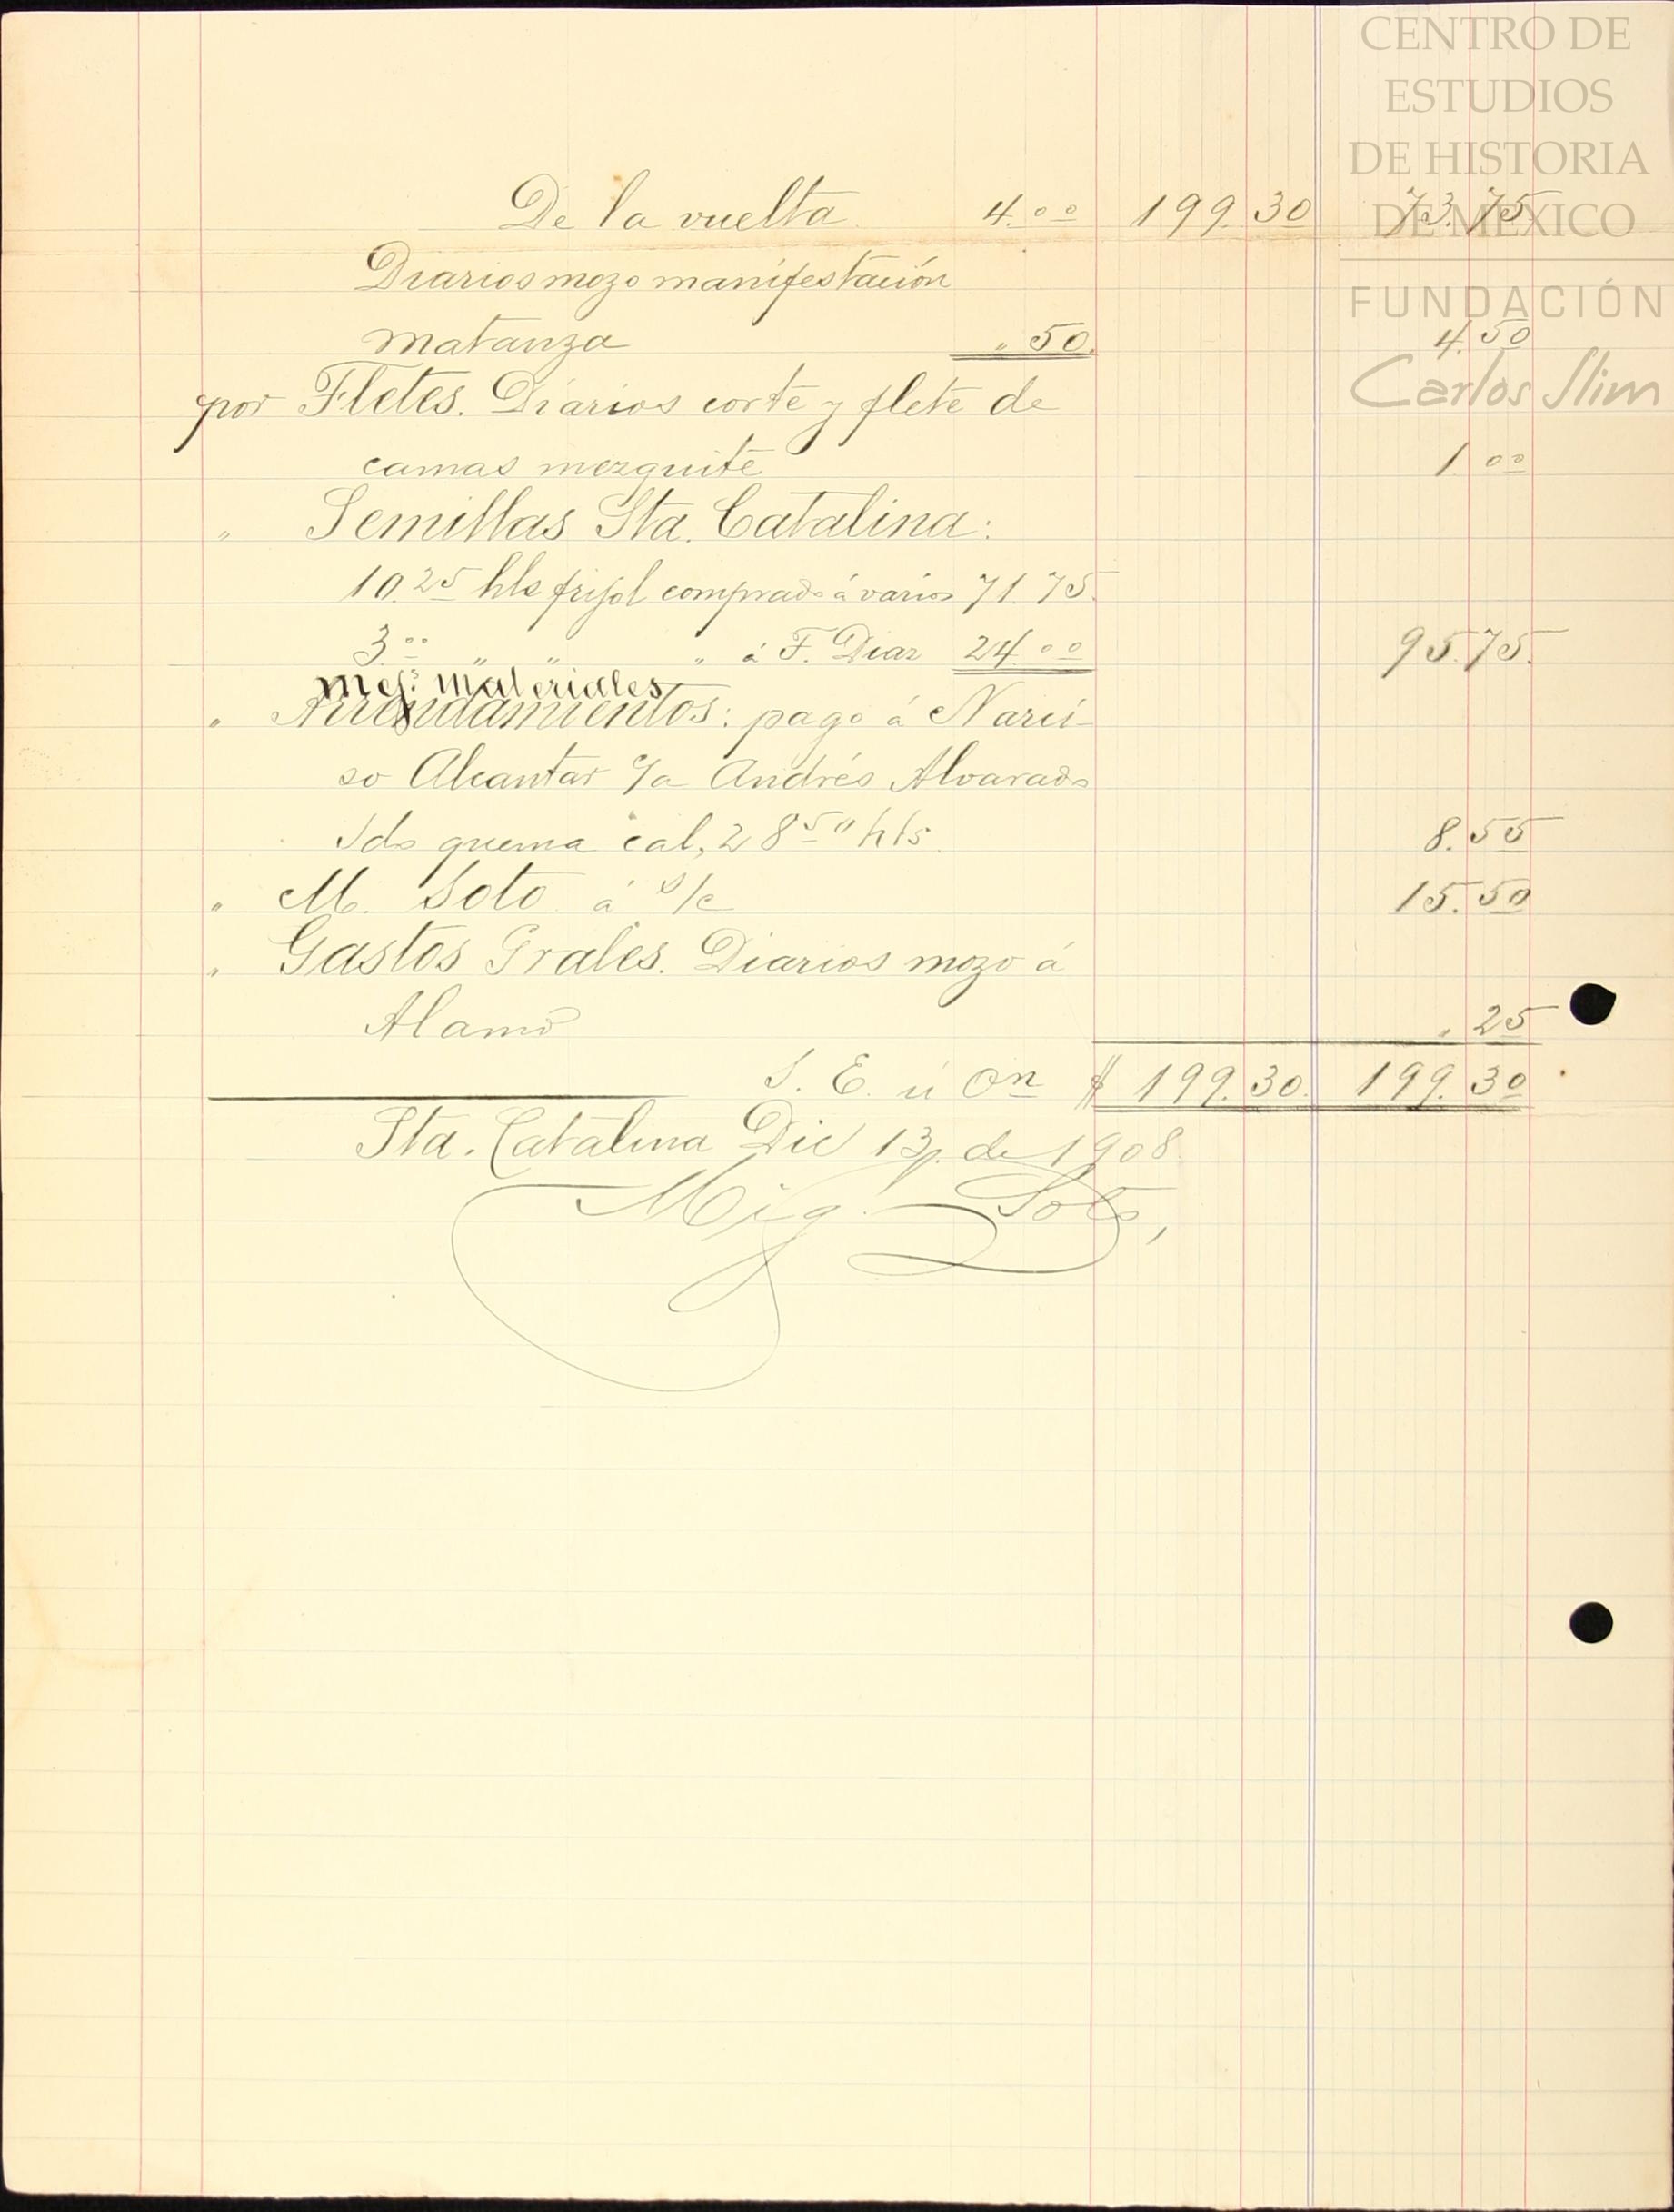 CENTRO DE
ESTUDIOS
DE HISTORIA
DE MÉXICO
FUNDACIÓN
Carlos Slim
De la vuelta 4.00 199.30 73.75
Diarios mozo manifestación
matanza " 50. 4.50
por Fletes. Diarios corte y flete de
camas mezquite 1 00
" Semillas Sta. Catalina:
10.25 hls frijol comprado á varios 71.75.
3.00 " " " á F. Diaz 24.00 95.75.
mej: materiales
" Arrendamientos: pago á Narci-
so Alcantar c/a Andrés Alvarado
sdo quema cal, 28 50 hls. 8.55
" M. Soto á s/c 15.50
" Gastos Grales. Diarios mozo á
Alamo " 25
S. E. ú On $ 199.30. 199.30
Sta. Catalina Dic 13. de 1908.
Mig. Soto,